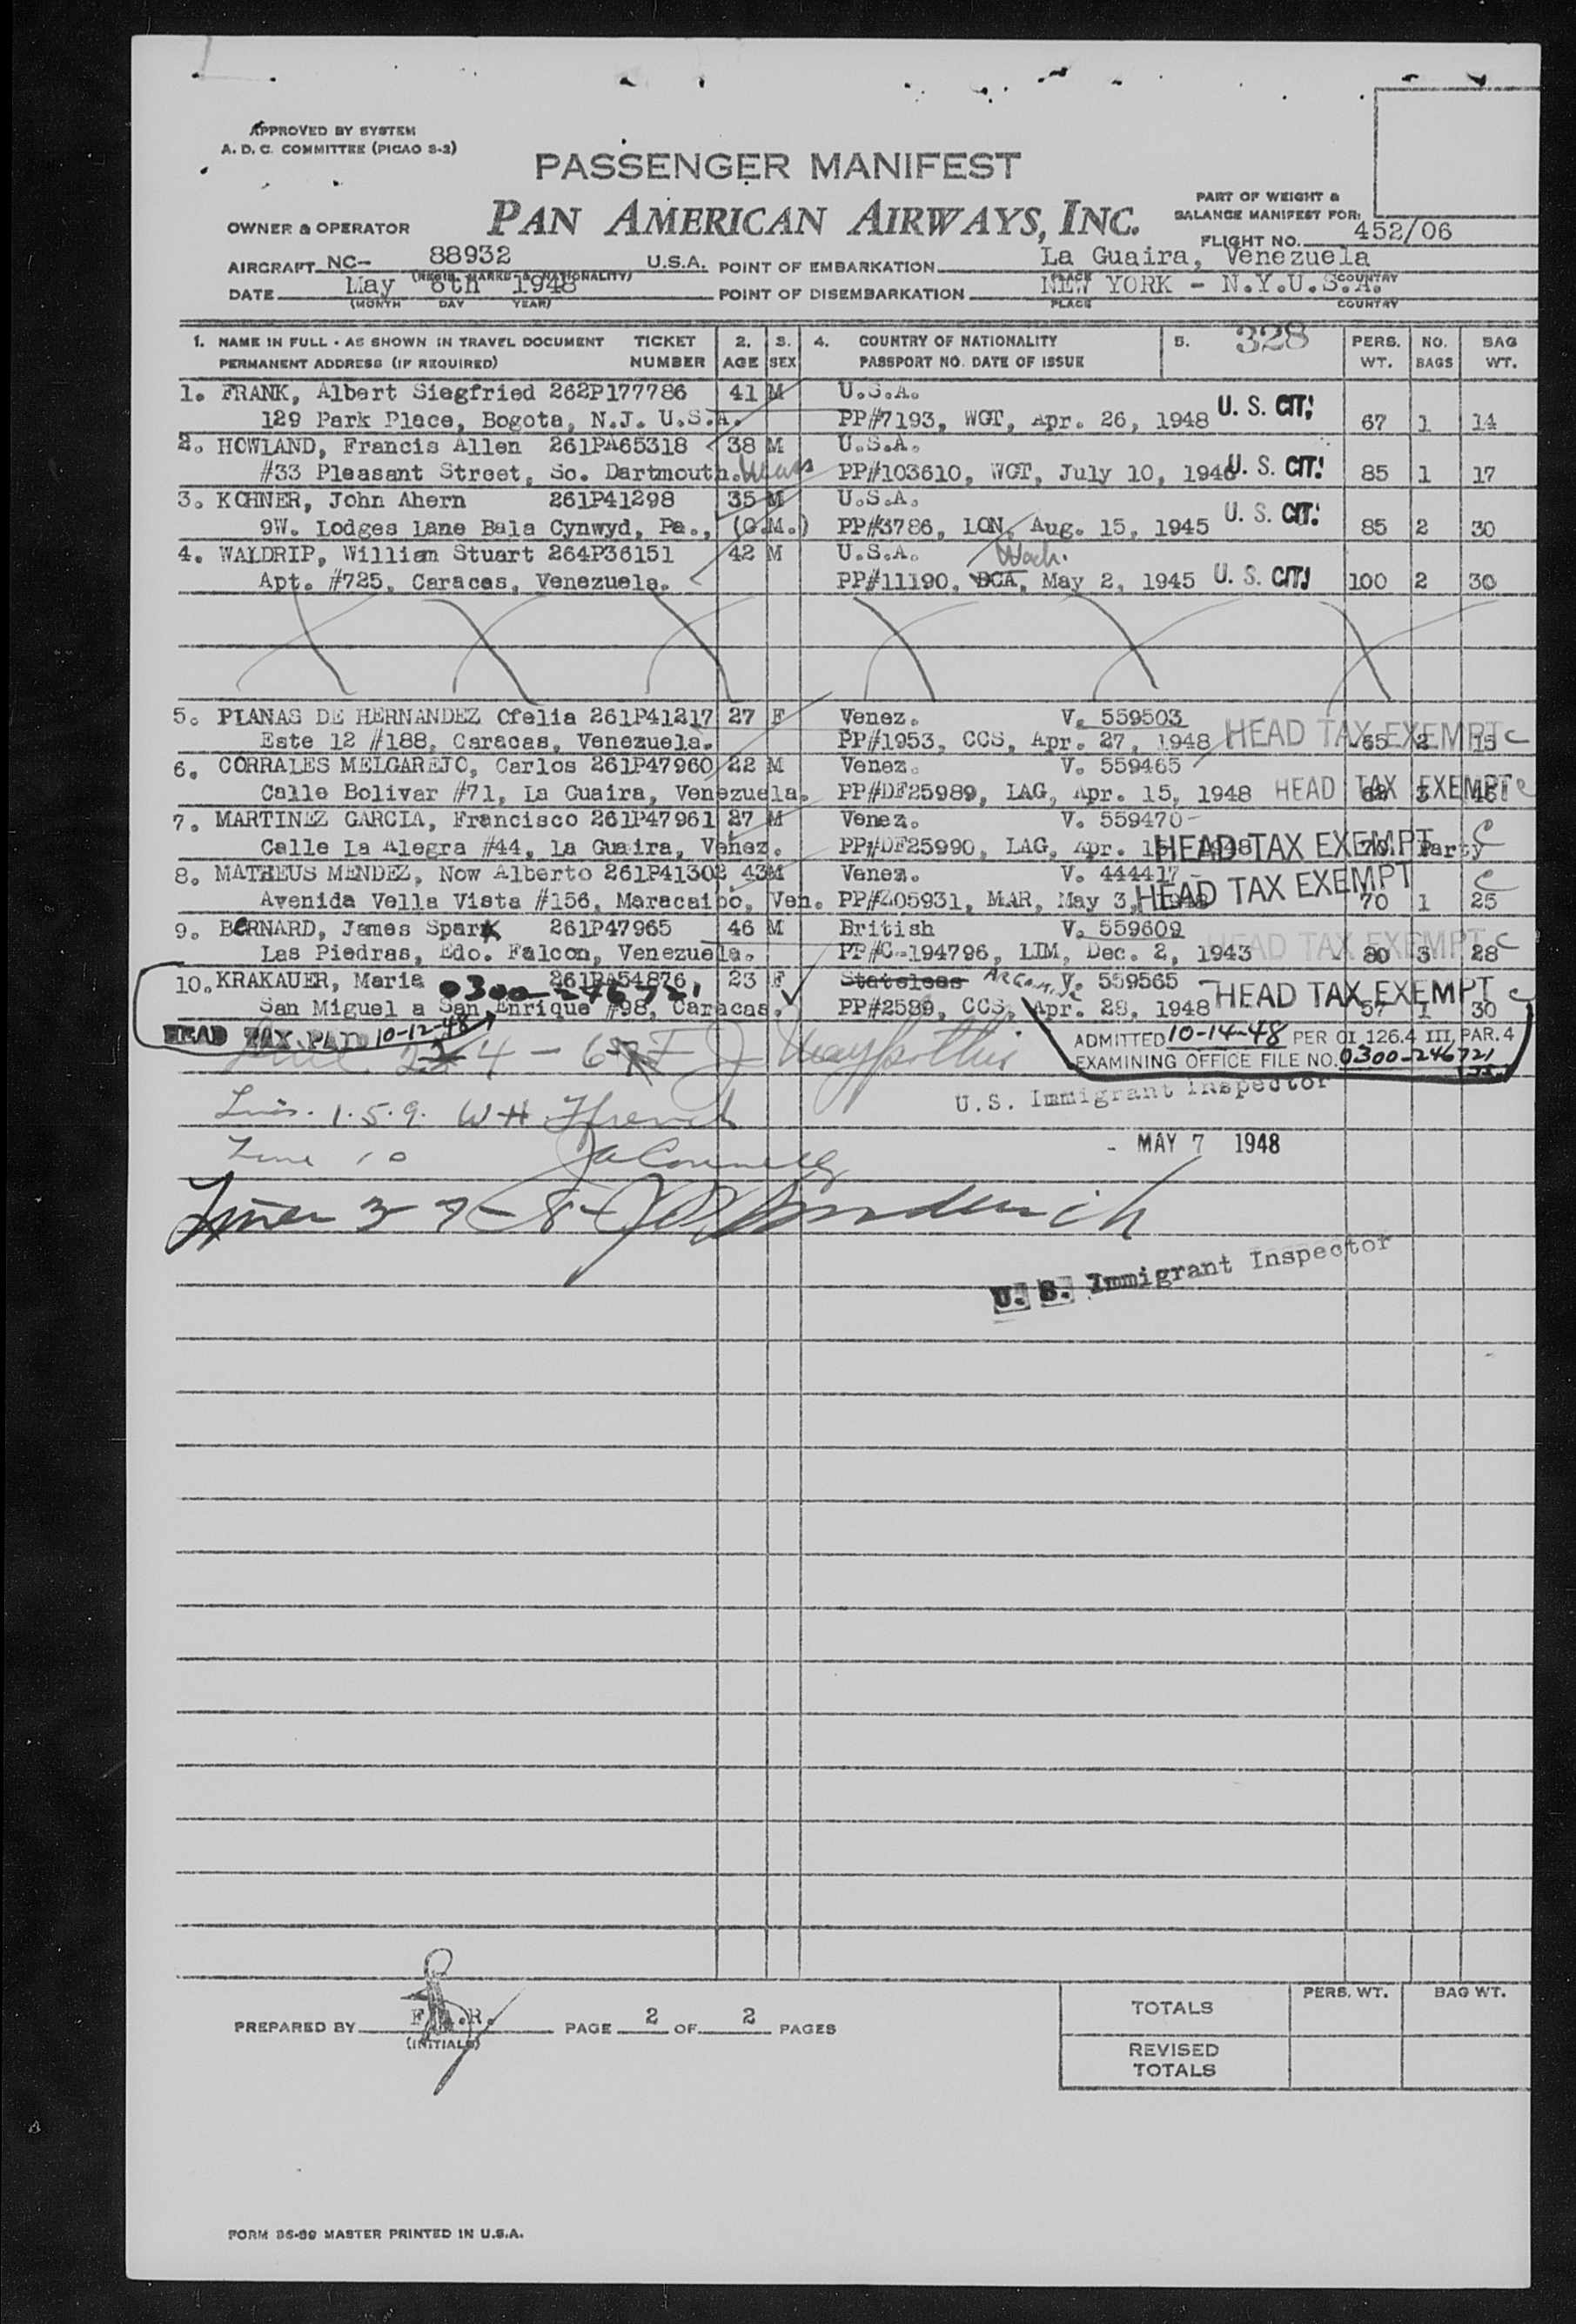 APPROVED BY SYSTEM
A. D. C. COMMITTEE (PICAO S-2)
PASSENGER MANIFEST
PAN AMERICAN AIRWAYS, INC.
PART OF WEIGHT &
BALANCE MANIFEST FOR:
OWNER & OPERATOR
FLIGHT NO. 452/06
AIRCRAFT NC- 88932 U.S.A. POINT OF EMBARKATION La Guaira, Venezuela
(REGIS. MARKS & NATIONALITY) PLACE COUNTRY
DATE May 6th 1948 POINT OF DISEMBARKATION NEW YORK - N.Y.U.S.A.
(MONTH DAY YEAR) PLACE COUNTRY
1. NAME IN FULL - AS SHOWN IN TRAVEL DOCUMENT TICKET 2. 3. 4. COUNTRY OF NATIONALITY 5. 328 PERS. NO. BAG
PERMANENT ADDRESS (IF REQUIRED) NUMBER AGE SEX PASSPORT NO. DATE OF ISSUE WT. BAGS WT.
1. FRANK, Albert Siegfried 262P177786 41 M U.S.A.
129 Park Place, Bogota, N.J. U.S.A. PP#7193, WGT, Apr. 26, 1948 U. S. CIT. 67 1 14
2. HOWLAND, Francis Allen 261PA65318 38 M U.S.A.
#33 Pleasant Street, So. Dartmouth. Mass PP#103610, WGT, July 10, 1946 U. S. CIT. 85 1 17
3. KOHNER, John Ahern 261P41298 35 M U.S.A.
9W. Lodges Lane Bala Cynwyd, Pa., (G.M.) PP#3786, LON, Aug. 15, 1945 U. S. CIT. 85 2 30
4. WALDRIP, William Stuart 264P36151 42 M U.S.A. Wash.
Apt. #725, Caracas, Venezuela. PP#11190, BCA, May 2, 1945 U. S. CIT. 100 2 30
5. PLANAS DE HERNANDEZ Ofelia 261P41217 27 F Venez. V. 559503
Este 12 #188, Caracas, Venezuela. PP#1953, CCS, Apr. 27, 1948 HEAD TAX EXEMPT C 65 2 15
6. CORRALES MELGAREJO, Carlos 261P47960 22 M Venez. V. 559465
Calle Bolivar #71, La Guaira, Venezuela. PP#DF25989, LAG, Apr. 15, 1948 HEAD TAX EXEMPT C 3
7. MARTINEZ GARCIA, Francisco 261P47961 27 M Venez. V. 559470
Calle La Alegra #44, La Guaira, Venez. PP#DF25990, LAG, Apr. 15, 1948 HEAD TAX EXEMPT C Party
8. MATHEUS MENDEZ, Now Alberto 261P41302 43 M Venez. V. 444417
Avenida Vella Vista #156, Maracaibo, Ven. PP#Z05931, MAR, May 3, HEAD TAX EXEMPT C 70 1 25
9. BeRNARD, James Spark 261P47965 46 M British V. 559609
Las Piedras, Edo. Falcon, Venezuela. PP#C-194796, LIM, Dec. 2, 1943 HEAD TAX EXEMPT C 80 3 28
10. KRAKAUER, Maria 261PA54876 23 F Stateless ARGENTINE V. 559565
0300-246721
San Miguel a San Enrique #98, Caracas. PP#2589, CCS, Apr. 28, 1948 HEAD TAX EXEMPT C 57 1 30
HEAD TAX PAID 10-12-48
ADMITTED 10-14-48 PER OI 126.4 III, PAR. 4
EXAMINING OFFICE FILE NO. 0300-246721
U.S. Immigrant Inspector
1.5.9. W H French
- MAY 7 1948
Line 10
U. S. Immigrant Inspector
PREPARED BY
(INITIALS)
PAGE 2 OF 2 PAGES
PERS. WT. BAG WT.
TOTALS
REVISED
TOTALS
FORM 86-89 MASTER PRINTED IN U.S.A.